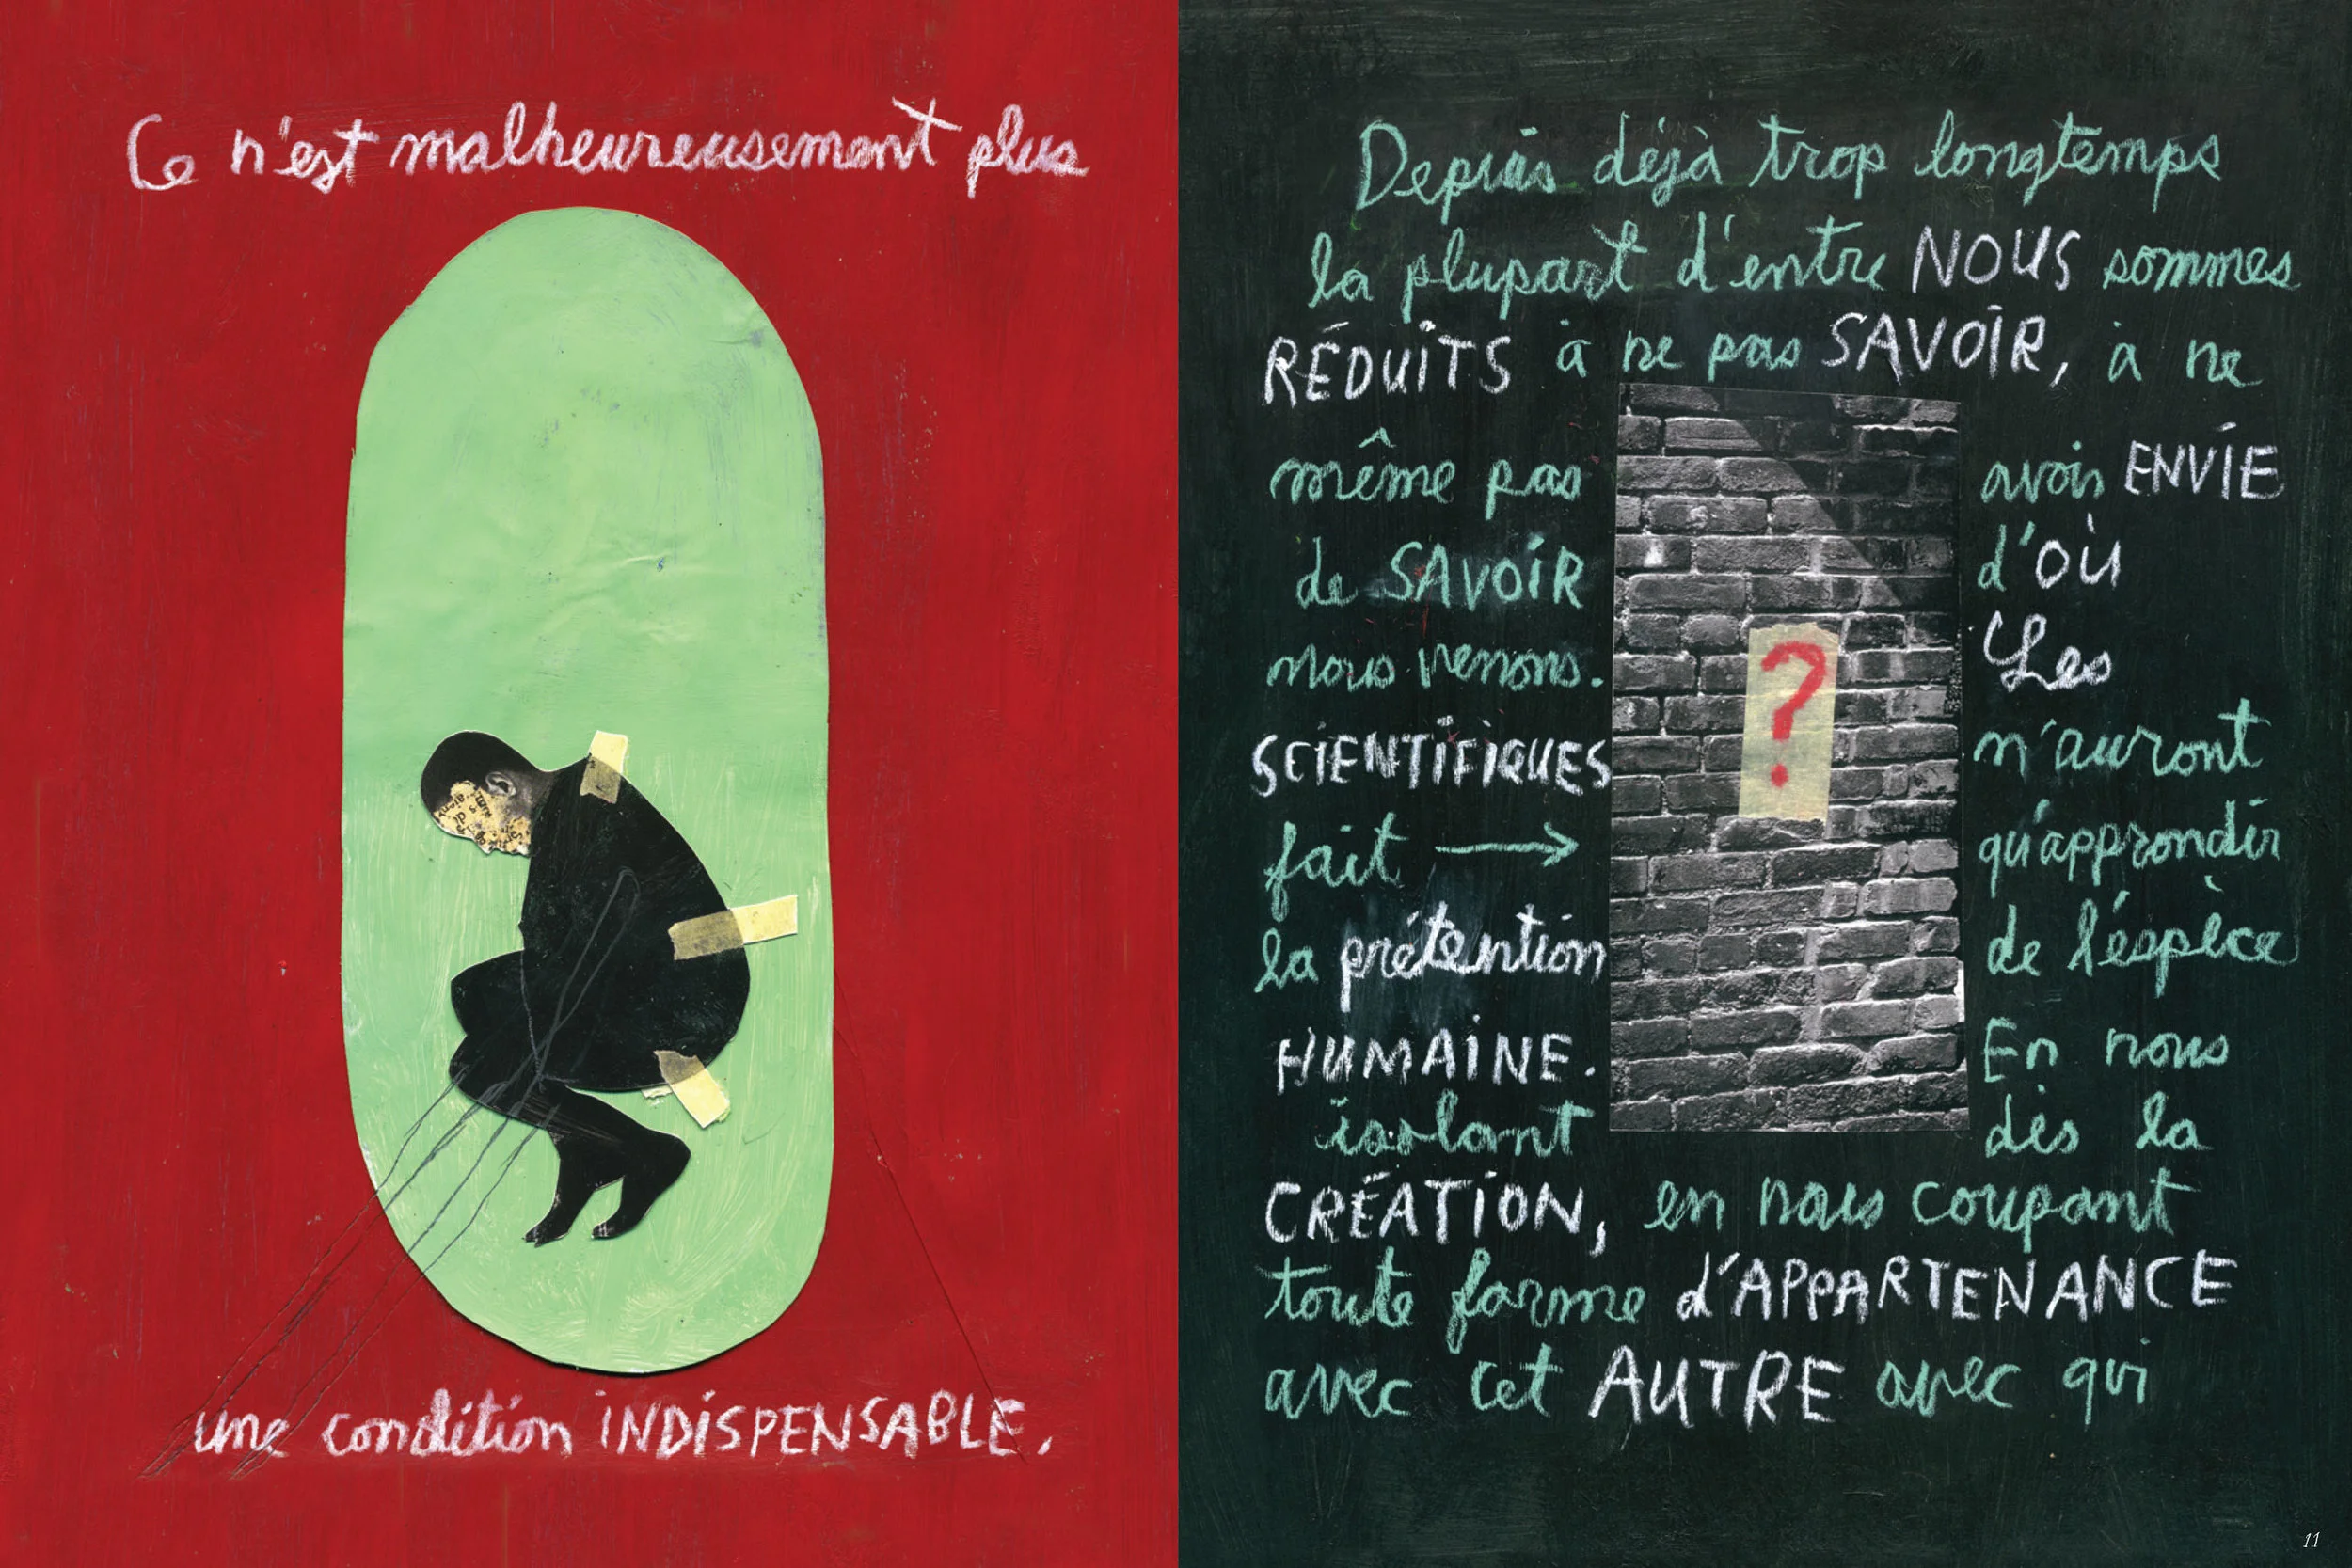 Ce n'est malheureusement plus
une condition INDISPENSABLE.
Depuis déjà trop longtemps
la plupart d'entre NOUS sommes
RÉDUITS à ne pas SAVOIR, à ne
même pas avoir ENVIE
de SAVOIR d'OÙ
nous venons. Les
SCIENTIFIQUES n'auront
fait → qu'approndir
la prétention de l'espèce
HUMAINE. En nous
isolant dès la
CRÉATION, en nous coupant
toute forme d'APPARTENANCE
avec cet AUTRE avec qui
?
11